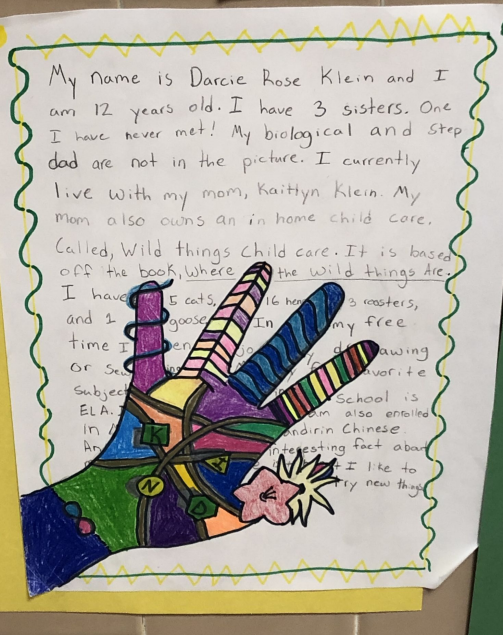 My name is Darcie Rose Klein and I
am 12 years old. I have 3 sisters. One
I have never met! My biological and step
dad are not in the picture. I currently
live with my mom, Kaitlyn Klein. My
mom also owns an in home child care.
Called, Wild things Child care. It is based
off the book, Where the Wild things Are.
I have 5 cats, 16 3 roosters,
and 1 goose. In my free
time I drawing
or favorite
Subject School is
ELA. I am also enrolled
In Mandirin Chinese.
An interesting fact about
I like to
try new things
K
N